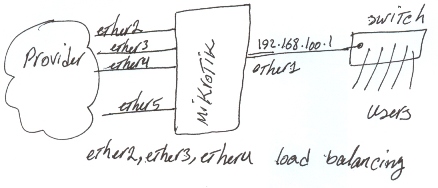 Provider
ether2
ether3
ether4
ether5
Mikrotik
192.168.100.1
ether1
switch
users
ether2, ether3, ether4 load balancing